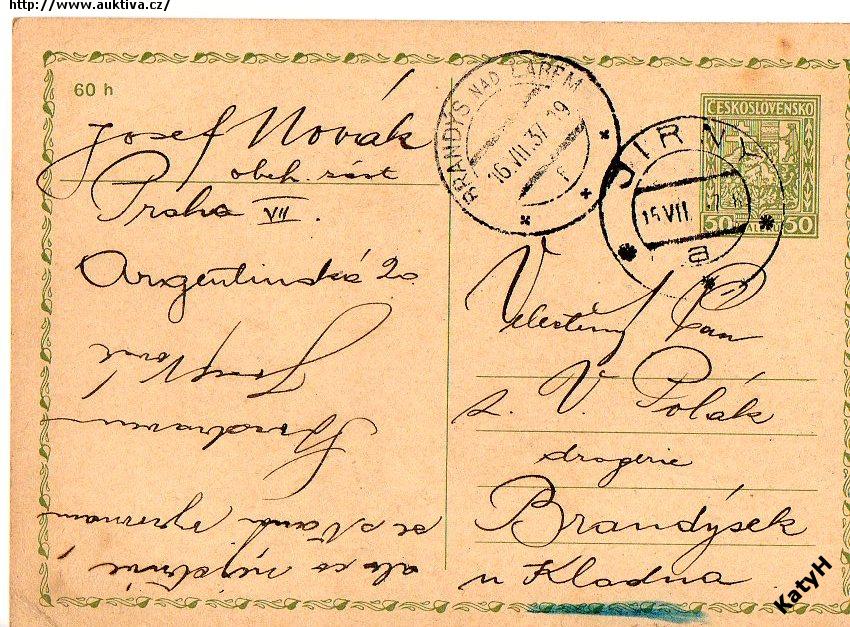 http://www.auktiva.cz/
60 h
Josef Novák
obch. zást
Praha VII.
Argentinská 20
BRANDÝS NAD LABEM
16.VII.37.19
F
JIRNY
15 VII.
a
ČESKOSLOVENSKO
50 50
Velectěný Pan
V. Polák
drogerie
Brandýsek
u Kladna
se s Vámi vyrovnám
KatyH